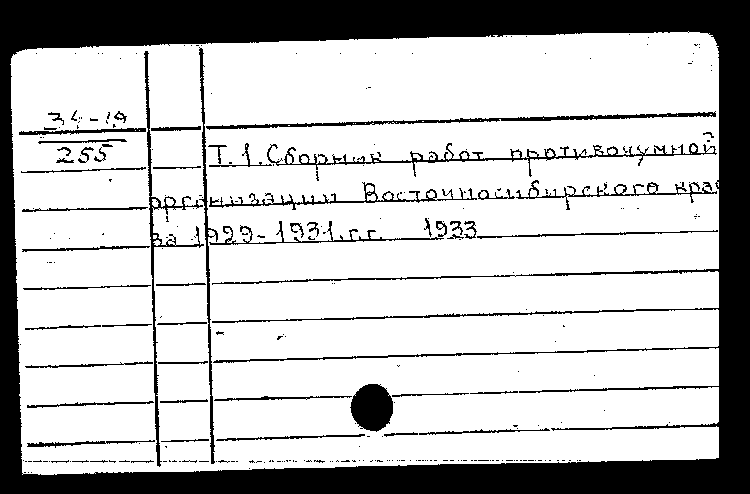 34-19
255
Т. 1. Сборник работ противочумной
организации Восточносибирского края
за 1929-1931.г.г. 1933